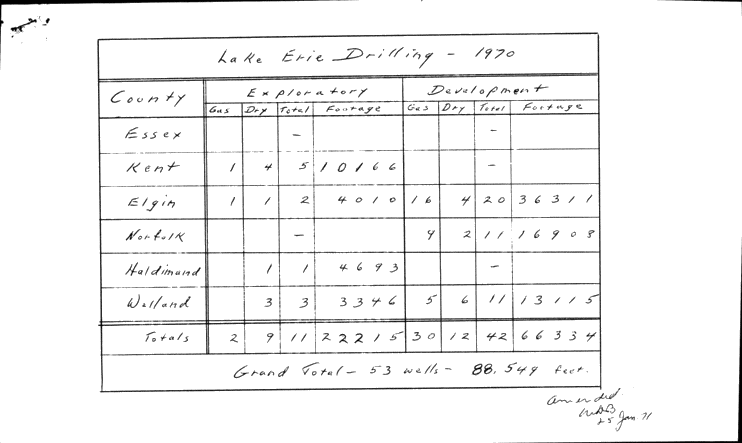 Lake Erie Drilling - 1970
County Exploratory Development
Gas Dry Total Footage Gas Dry Total Footage
Essex - -
Kent 1 4 5 10166 -
Elgin 1 1 2 4010 16 4 20 36311
Norfolk - 9 2 11 16908
Haldimand 1 1 4693 -
Welland 3 3 3346 5 6 11 13115
Totals 2 9 11 22215 30 12 42 66334
Grand Total - 53 wells - 88,549 feet.
amended
25 Jan. 71